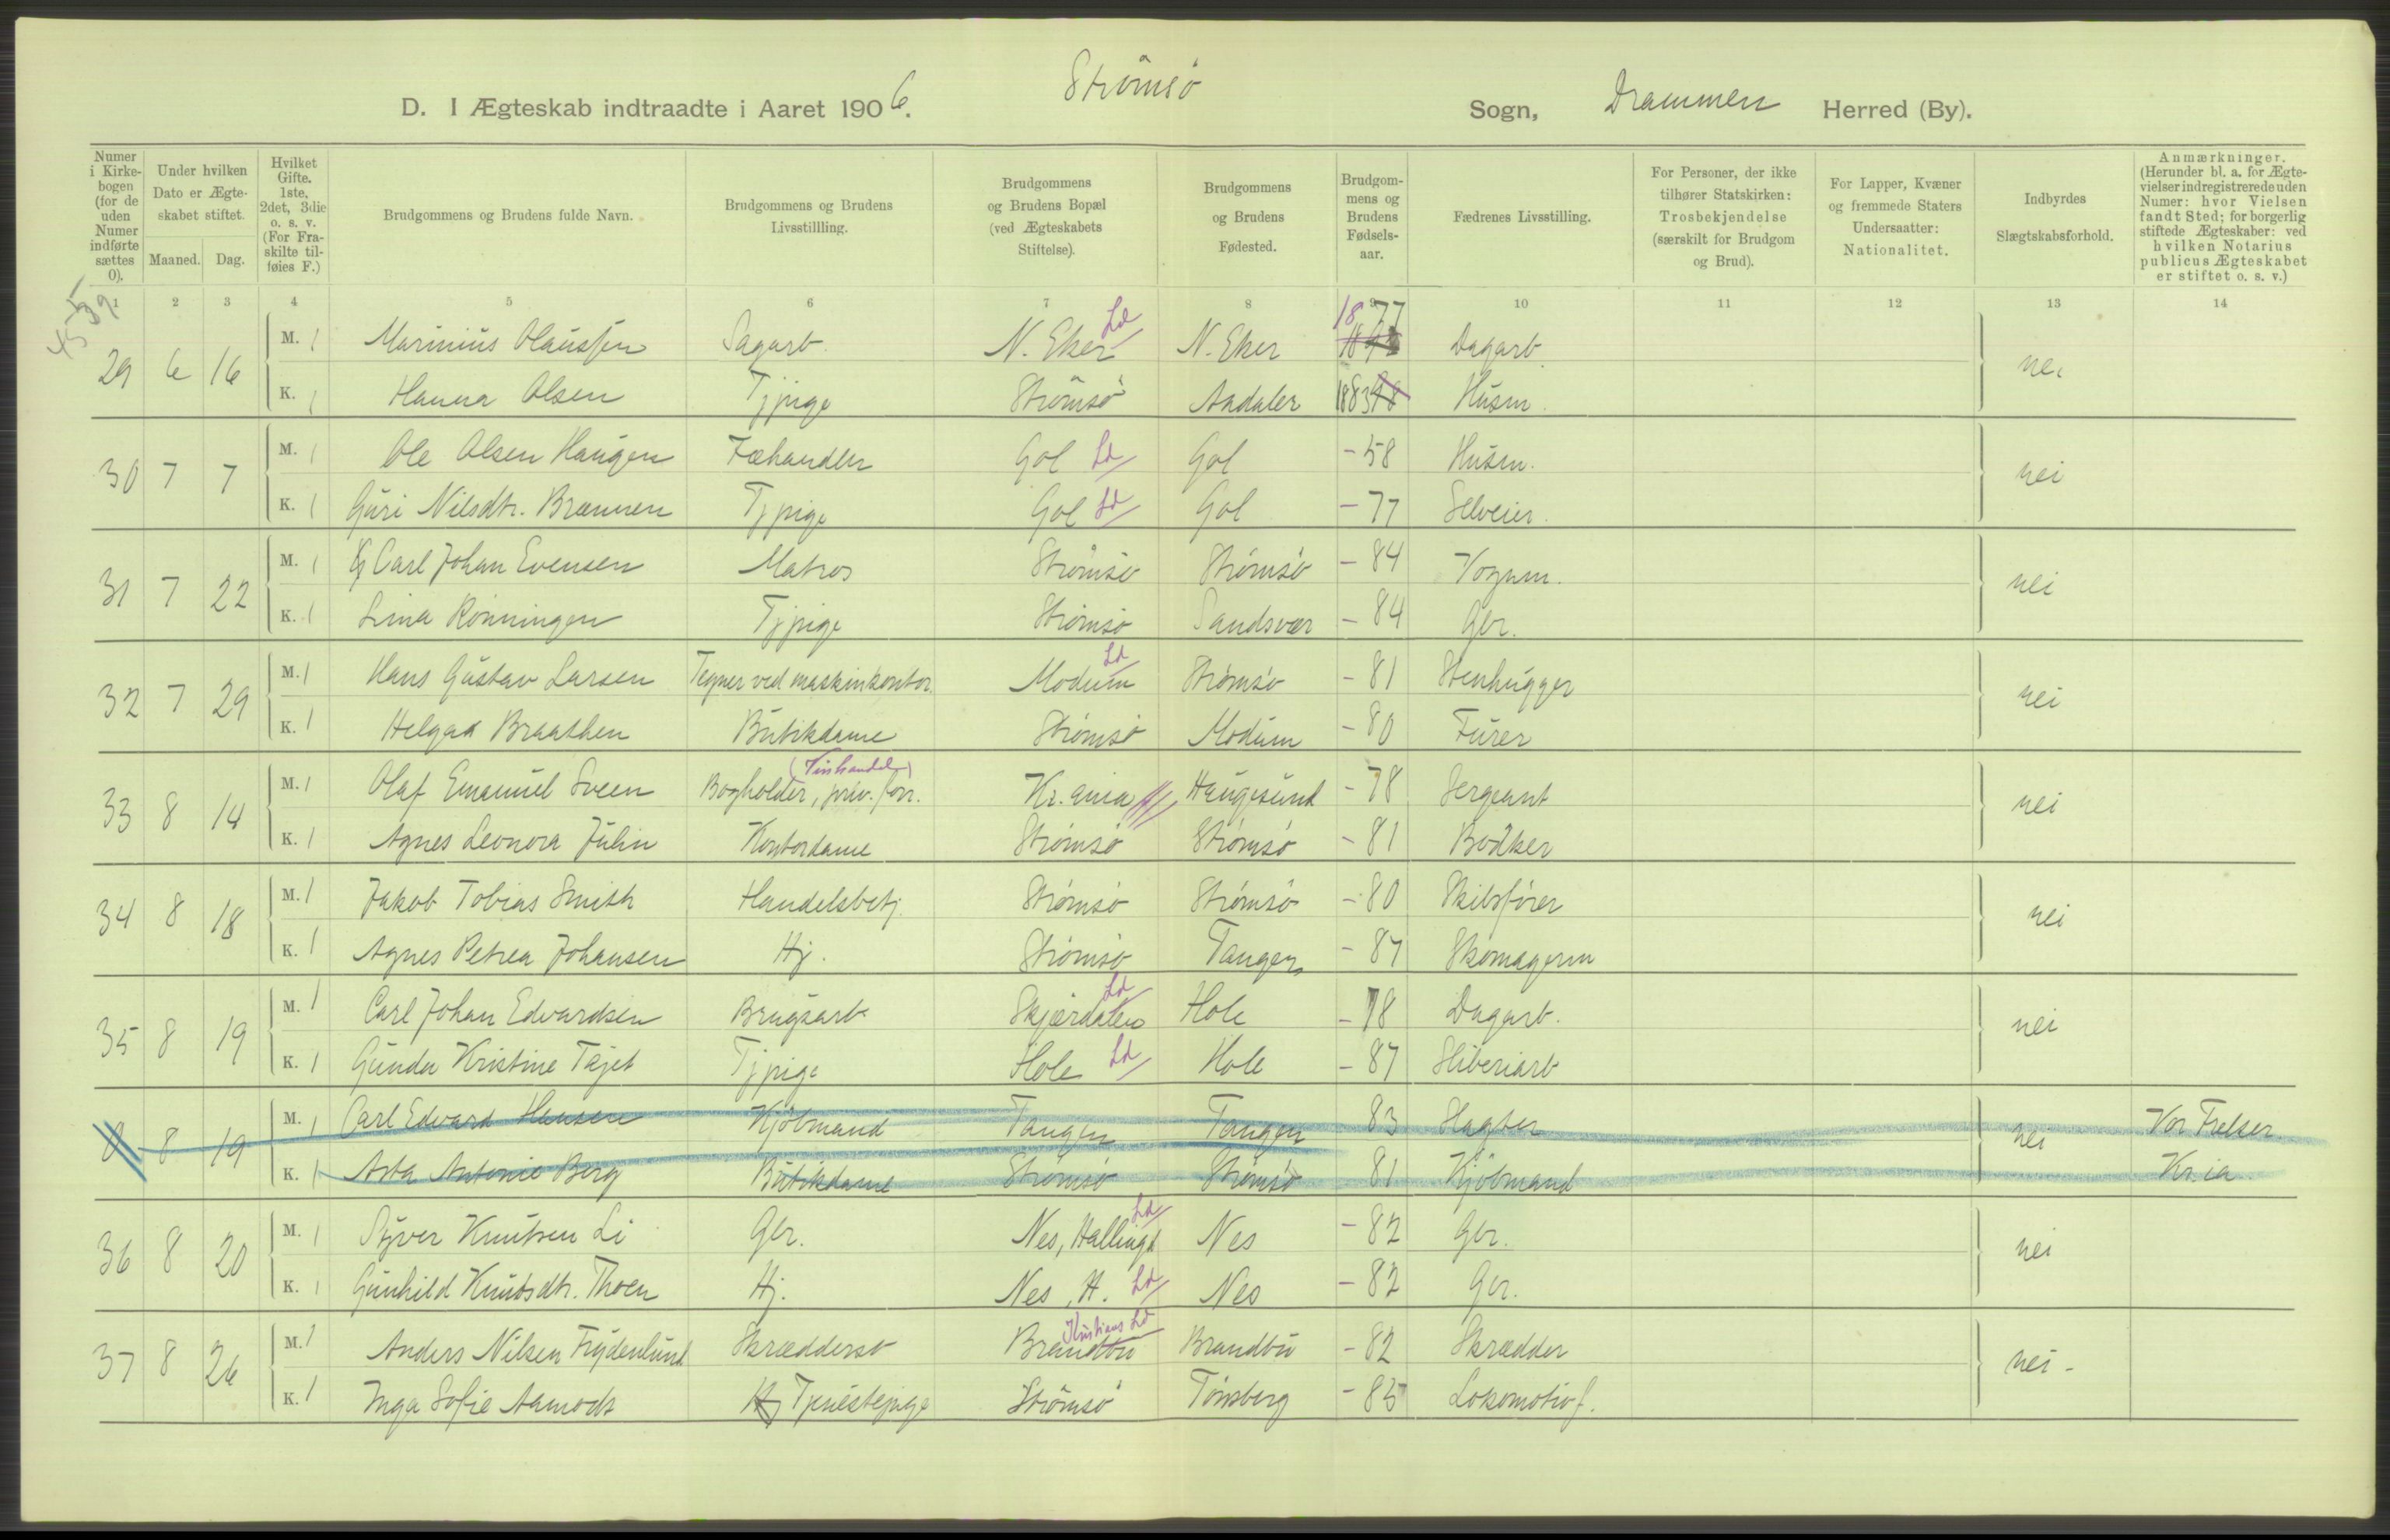 Strömsö
D. I Ægteskab indtraadte i Aaret 1906. Sogn, Drammen Herred (By).
Numer i Kirkebogen (for de uden Numer indførte sættes 0).
Under hvilken Dato er Ægteskabet stiftet.
Maaned. Dag.
Hvilket Gifte. 1ste, 2det, 3die o. s. v. (For Fraskilte tilføies F.)
Brudgommens og Brudens fulde Navn.
Brudgommens og Brudens Livsstillling.
Brudgommens og Brudens Bopæl (ved Ægteskabets Stiftelse).
Brudgommens og Brudens Fødested.
Brudgommens og Brudens Fødselsaar.
Fædrenes Livsstilling.
For Personer, der ikke tilhører Statskirken: Trosbekjendelse (særskilt for Brudgom og Brud).
For Lapper, Kvæner og fremmede Staters Undersaatter: Nationalitet.
Indbyrdes Slægtskabsforhold.
Anmærkninger. (Herunder bl. a. for Ægtevielser indregistrerede uden Numer: hvor Vielsen fandt Sted; for borgerlig stiftede Ægteskaber: ved hvilken Notarius publicus Ægteskabet er stiftet o. s. v.)
1 2 3 4 5 6 7 8 9 10 11 12 13 14
29 6 16 M. 1 Marinius Olaussen Sagarb. N. Eker Ld N. Eker 1877 Dagarb. nei
K. 1 Hanna Olsen Tjpige Strömsö Aadalen 1883 Husm.
30 7 7 M. 1 Ole Olsen Haugen Fæhandler Gol Ld Gol - 58 Husm. nei
K. 1 Guri Nilsdtr. Brænnen Tjpige Gol Ld Gol - 77 Selveier.
31 7 22 M. 1 Carl Johan Evensen Matros Strömsö Strömsö - 84 Vognm. nei
K. 1 Lina Rönningen Tjpige Strömsö Sandsvær - 84 Gbr.
32 7 29 M. 1 Hans Gustav Larsen Tegner ved maskinkontor. Modum Ld Strömsö - 81 Stenhugger nei
K. 1 Helga Braathen Butikdame Strömsö Modum - 80 Furer
33 8 14 M. 1 Olaf Emanuel Sveen Bogholder, priv. forr. (Vinhandel) Kr.ania Haugesund - 78 Sergeant nei
K. 1 Agnes Leonora Julin Kontordame Strömsö Strömsö - 81 Bödker
34 8 18 M. 1 Jakob Tobias Smith Handelsbetj. Strömsö Strömsö - 80 Skibsfører nei
K. 1 Agnes Petrea Johansen Hj. Strömsö Tangen - 87 Skomagerm
35 8 19 M. 1 Carl Johan Edvardsen Brugsarb Skjærdalen Ld Hole - 78 Dagarb. nei
K. 1 Gunda Kristine Tajet Tjpige Hole Ld Hole - 87 Sliberiarb
0 8 19 M. 1 Carl Edvard Hansen Kjöbmand Tangen Tangen 83 Slagter nei Vor Frelser
K. 1 Asta Antonie Berg Butikdame Strömsö Strömsö 81 Kjöbmand Kr.ia
36 8 20 M. 1 Syver Knutsen Li Gbr. Nes, Hallingd Ld Nes - 82 Gbr. nei
K. 1 Gunhild Knutsdtr. Thoen Hj. Nes, H. Ld Nes - 82 Gbr.
37 8 26 M. 1 Anders Nilsen Frydenlund Skræddersv Brandbu Kristians Ld Brandbu - 82 Skrædder nei -
K. 1 Inga Sofie Aamodt Hj Tjenestepige Strömsö Tönsberg - 85 Lokomotivf.